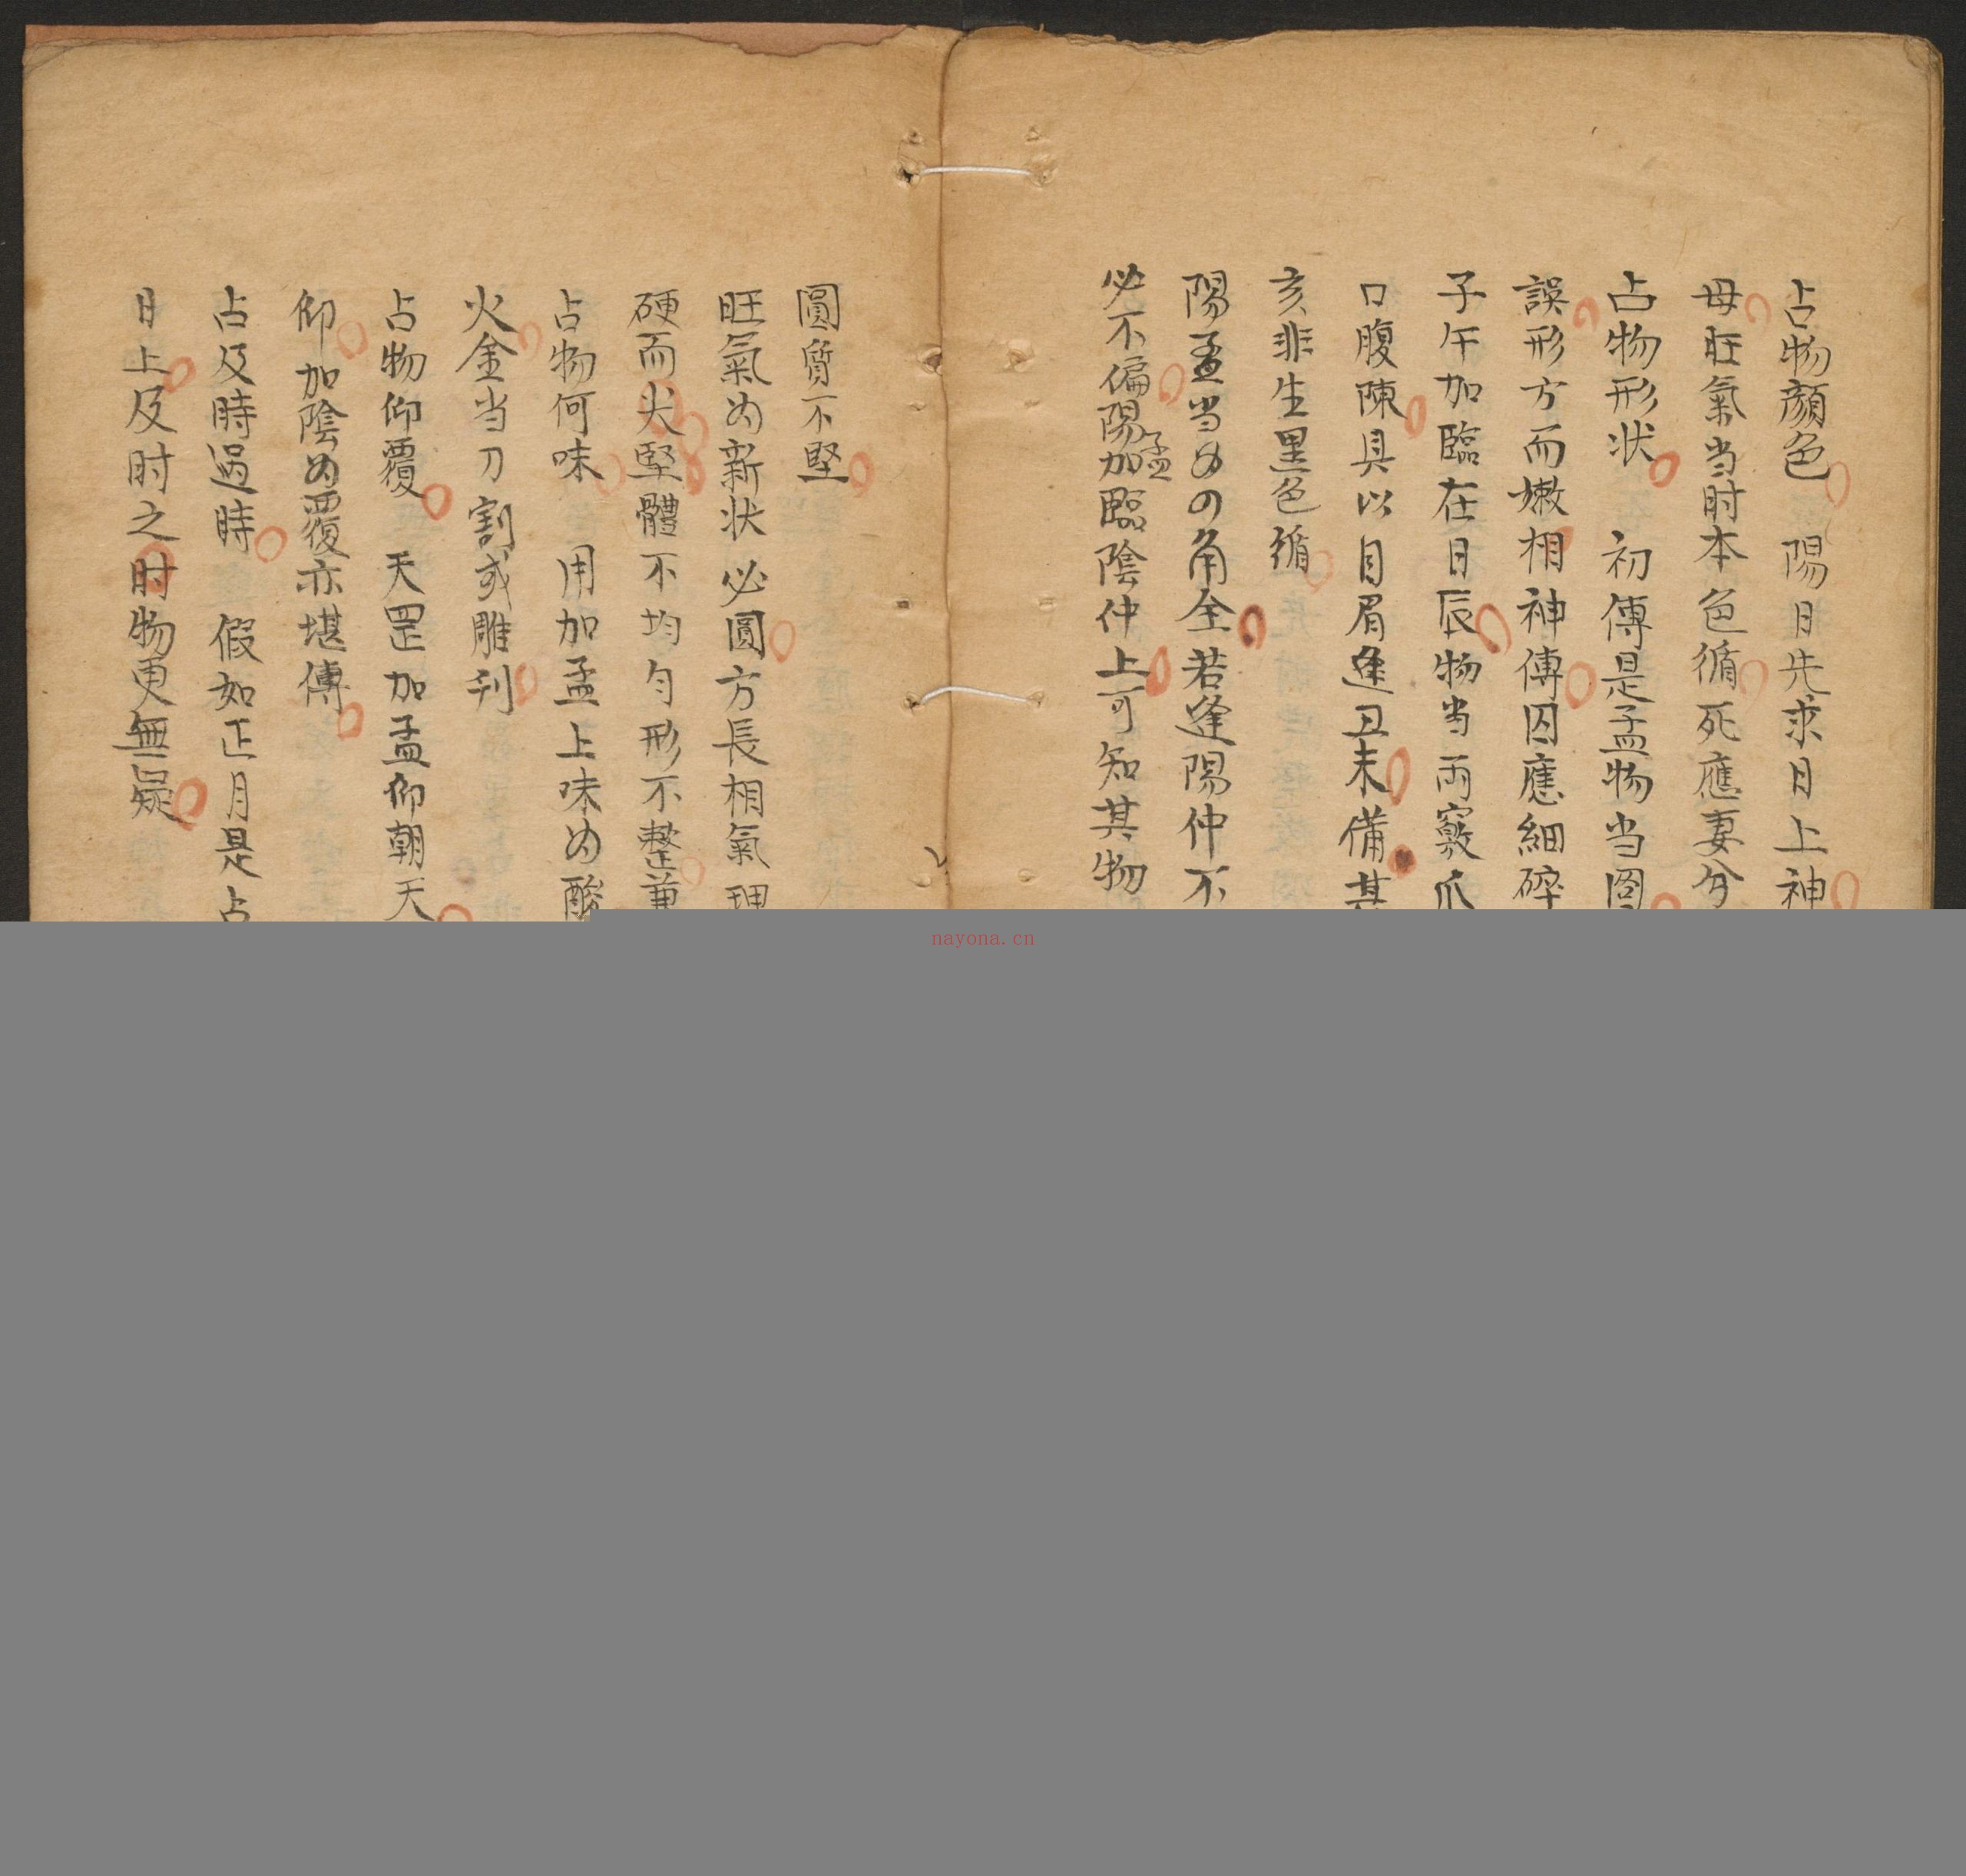 占物顔色　陽日先求日上神
母旺氣当时本色循死應妻兮
占物形状　初傳是孟物当圓
誤形方而嫩相神傳囚應細碎
子午加臨在日辰物当両竅爪
口腹陳具以目眉逢丑未備其
亥非生黒色循
陽孟当為四角全若逢陽仲不
必不偏陽孟加臨陰仲上可知其物
圓質不堅
旺氣為新状必圓方長相氣理
硬而尖堅體不均勻形不整兼
占物何味　用加孟上味為酸
火金当刀割或雕刋
占物仰覆　天罡加孟仰朝天
仰加陰為覆亦堪傳
占及時過時　假如正月是占
日上及时之时物更無疑
nayona.cn